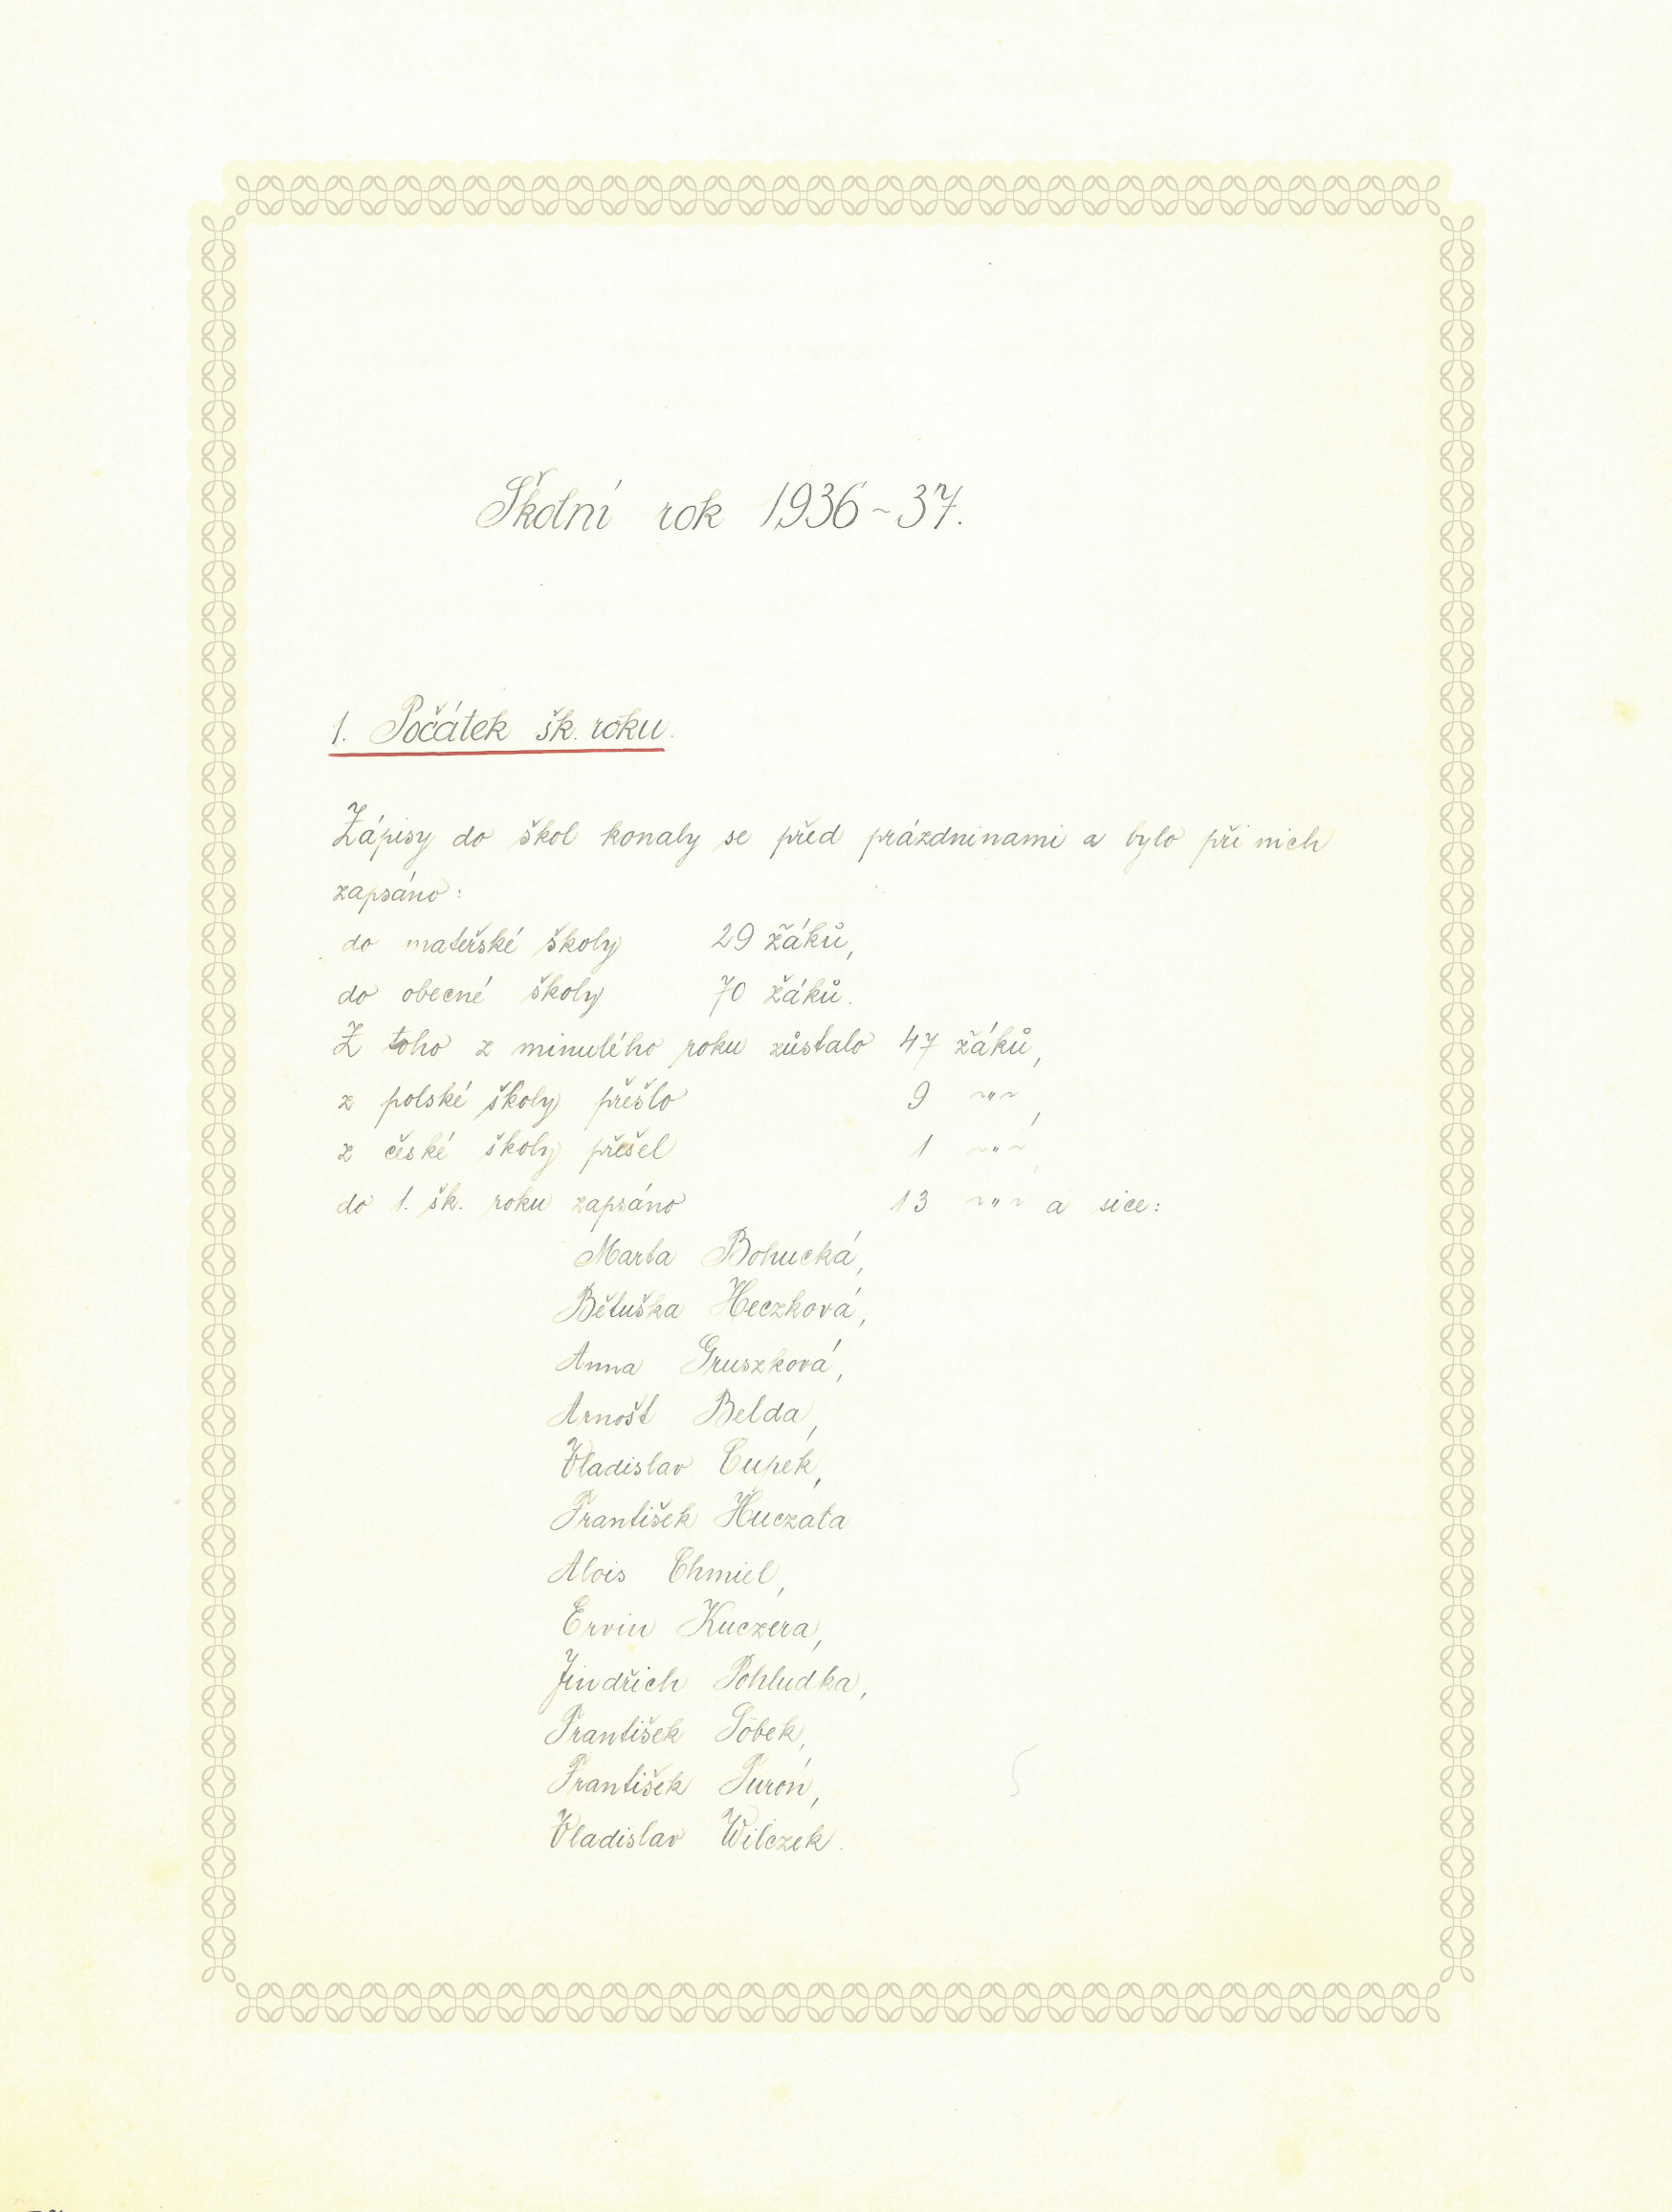 Školní rok 1936~37.
1. Počátek šk. roku.
Zápisy do škol konaly se před prázdninami a bylo při nich
zapsáno:
do mateřské školy 29 žáků,
do obecné školy 70 žáků.
Z toho z minulého roku zůstalo 47 žáků,
z polské školy přešlo 9 ~"~,
z české školy přešel 1 ~"~,
do 1. šk. roku zapsáno 13 ~"~ a sice:
Marta Bohucká,
Běluška Heczková,
Anna Gruszková,
Arnošt Belda,
Vladislav Cupek,
František Huczała
Alois Chmiel,
Ervin Kuczera,
Jindřich Pohludka,
František Sobek,
František Turoň,
Vladislav Wilczek.